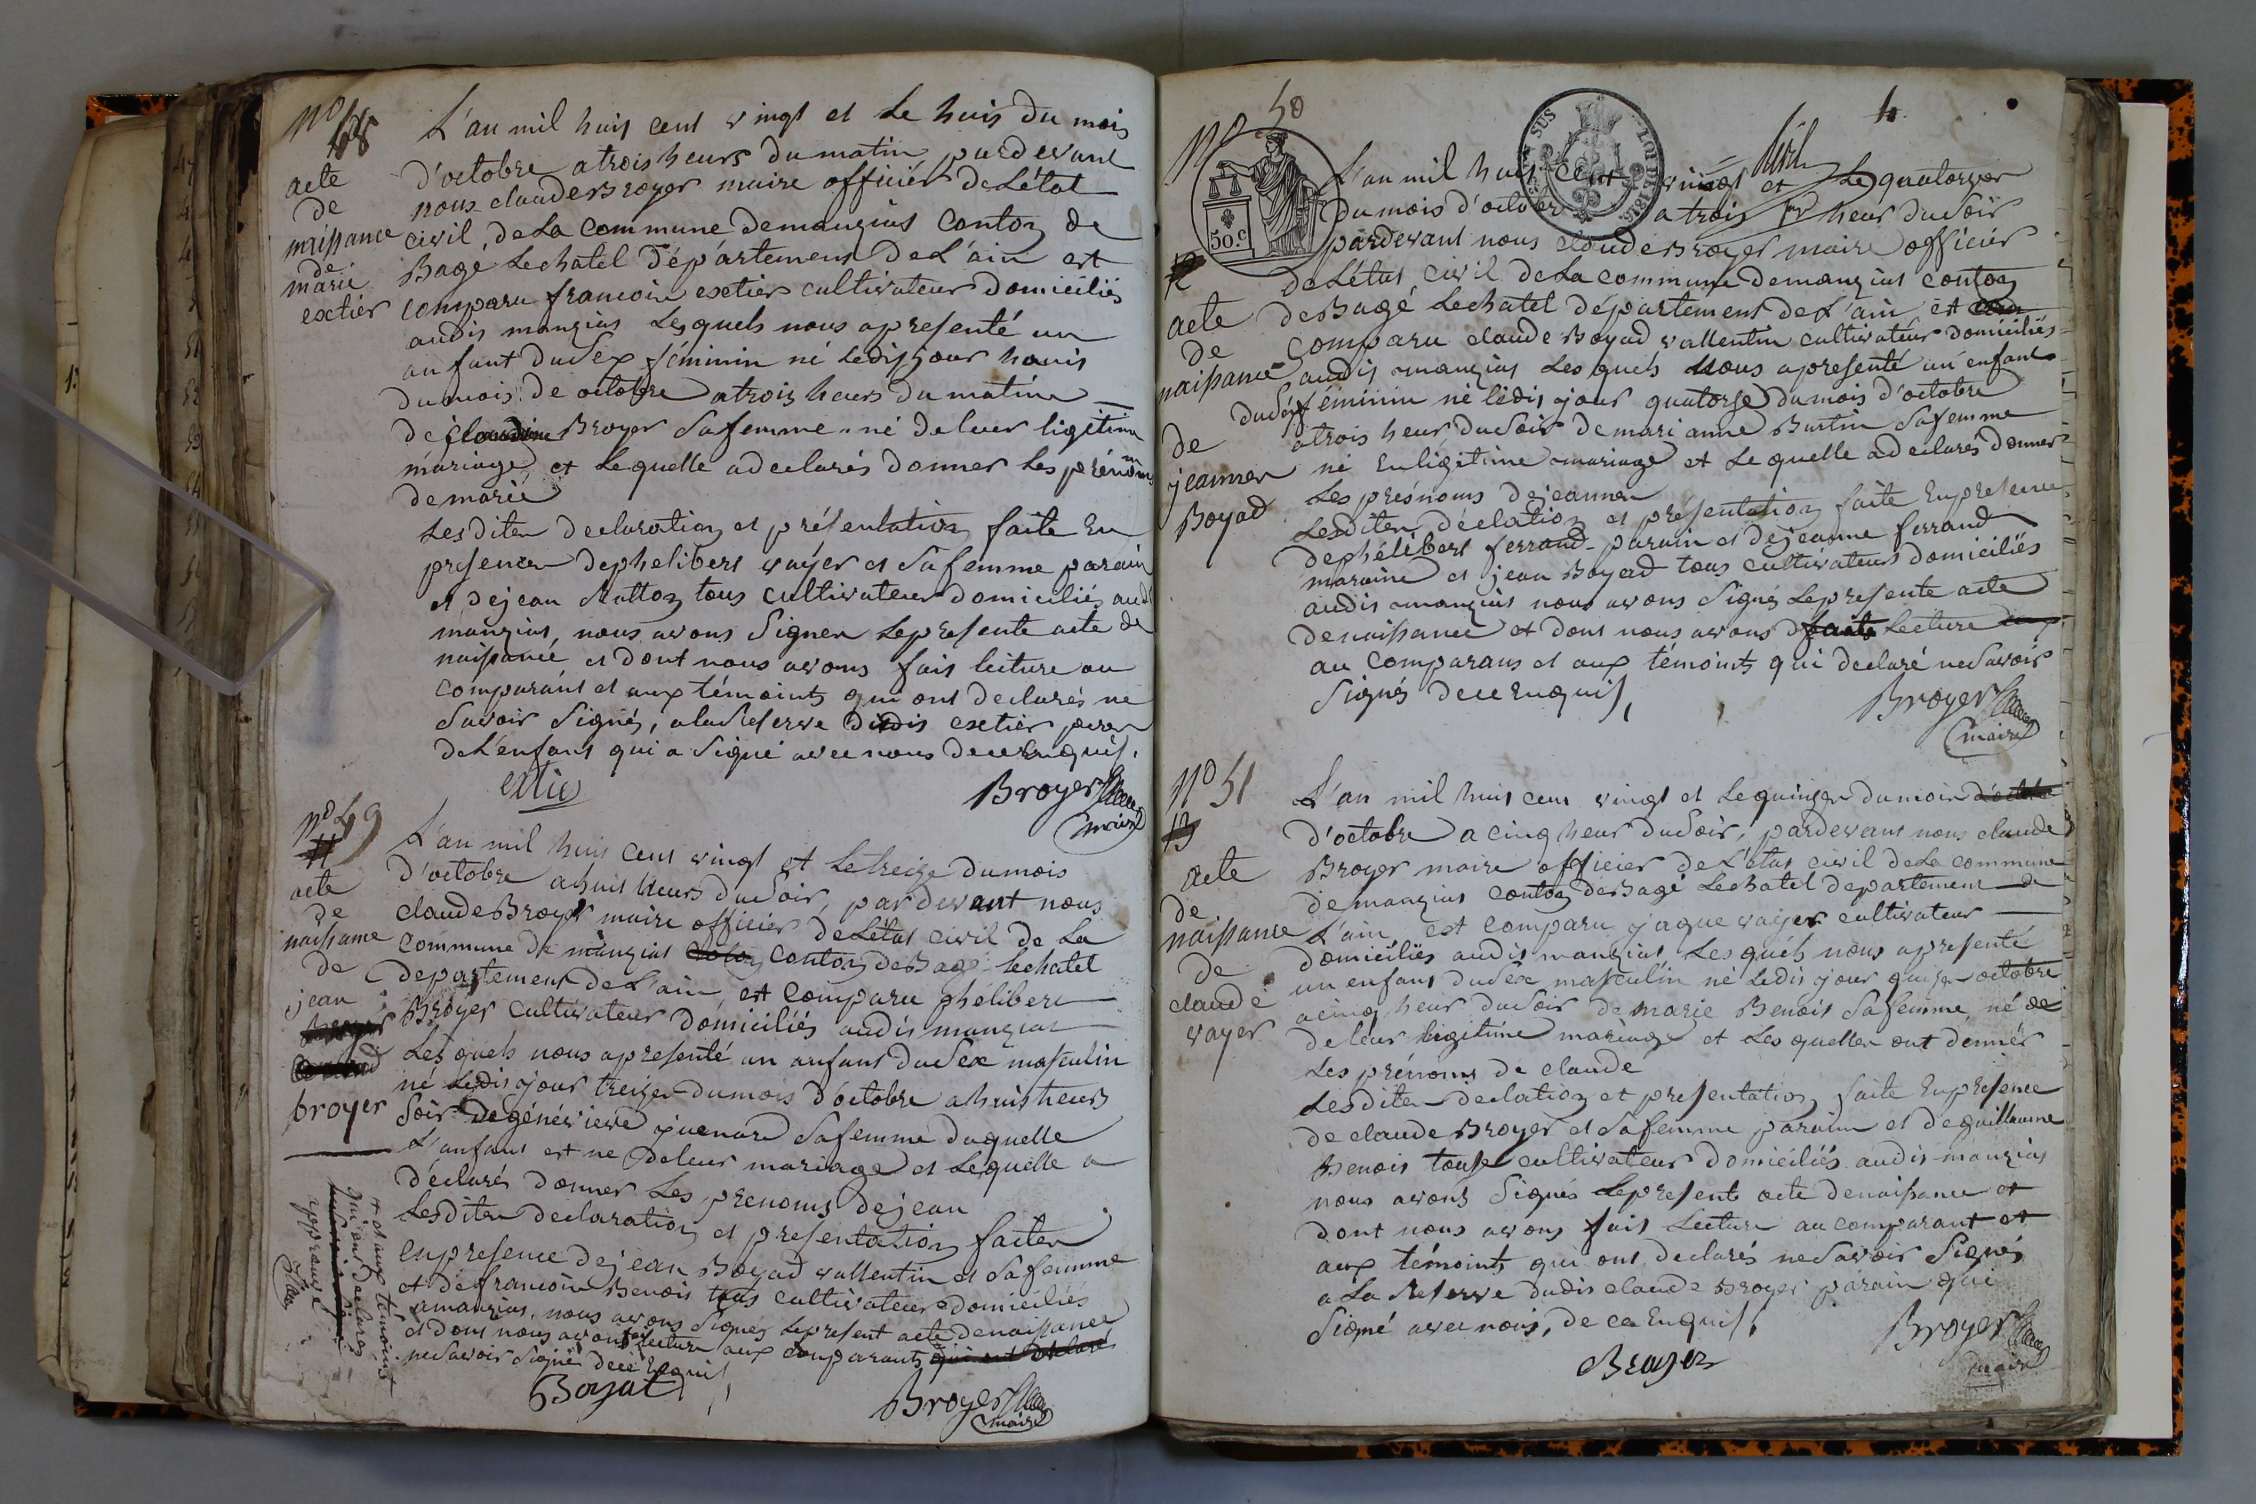 No 48
acte
de
naissance
de
marie
extier
L'an mil huit cent vingt et Le huit Du mois
d'octobre a trois heurs du matin pardevant
nous claude Broyer maire officiér De L'état
civil, de La Commune demanzias Conton de
Bagé Lechatel Départemens De L'ain est
comparu francoin extier cultivateur domiciliés
audis manzias Lesquels nous apresenté un
anfant du Sex féminin né Ledis jour huit
du mois de octobre a trois heurs du matine
de claudine Broyer Safemme né de luer ligitime
mariage et Lequelle adeclarés donner Les prénoms
de marie
Lesditer declaration et présentation faite En
presencer dephelibert vayer et Safemme parain
et dejean Catton tous cultivateur domiciliés aud
manzias, nous avons Signer Lepresente acte de
naissance et dont nous avons fais lecture au
comparans et aux témoints qui ont declarés ne
Savoir Signés, ala Reserve dudis extier perer
de L'enfant qui a Signé avec nous dece Enquis.
extier
Broyer
maire
No 49
11
acte
de
naissance
de
jean
broyer
L'an mil huis cent vingt et Le treize du mois
d'octobre ahuit heurs du Soir, pardevant nous
claude Broyer maire officier de L'état civil de La
commune de manzias Conton de Bagé Lechatel
departement de L'ain est comparu phélibert
Broyer cultivateur domiciliés audis manzias
Lesquels nous apresenté un anfant du Séx masculin
né Ledis jour treizer du mois d'octobre ahuit heurs
Soir de génévieve Safemme duquelle
L'anfant est ne deleur mariage et Lequelle a
déclarés donner Les prenoms de jean
Lesditer declaration et presentation faiter
en presence de jean Boyad vallentin et Safemme
et de francoin Benois tous cultivateurs domiciliés
amanzias, nous avons Signés Lepresent acte denaissance
et dont nous avons fais lecture aux comparants qui ont declaré
ne Savoir Signés dece Enquis
+ et aux témoints
qui ont declarés
approuvé
Boyat
Broyer
maire
No 50
LOI DE 1816
50.c
12
acte
de
naissance
de
jeanner
Boyad
L'an mil huis cent vingt et Le quatorzer
du mois d'octobre a trois heur du Soir
pardevant nous claude Broyer maire officiér
de L'état civil de La commune demanzias conton
de Bagé Lechatel département de L'ain est
comparu claude Boyad vallentin cultivateur domiciliés
audis manzias Lesquels nous apresenté un enfant
du Séx féminin né lédis jour quatorze du mois d'octobre
atrois heur du Soir de mari anne Burtin Safemme
né En ligitime mariage et Lequelle adeclarés donner
Les présnoms dejeanner
Lesditer déclation et presentation faite Enpresence
dephélibert ferrand parain et dejeanne ferrand
maraine et jean Boyad tous cultivateurs domiciliés
audis manzias nous avons Signés Lepresente acte
denaissance et dont nous avons faite Lecture
au comparans et aux témoints qui declaré ne Savoir
Signés dece Enquis,
Broyer
maire
No 51
13
acte
de
naissance
de
claude
vayer
L'an mil huis cent vingt et Le quinzer du mois d'octobre
d'octobre a cinq heur du Soir, pardevant nous claude
Broyer maire officier de L'état civil de La commune
de manzias conton de Bagé Lechatel departement de
L'ain, est comparu jaque vayer cultivateur
domiciliés audis manzias Lesquels nous apresenté
un enfant du Séx masculin né Ledis jour quize octobre
acinq heur du Soir de marie Benois Safemme, né de
de leur legitime mariage et Les queller ont donnér
Les prénoms de claude
Lesditer declation et presentation faite Enpresence
de claude Broyer et Safemme parain et de guillaume
Benois tous cultivateur domiciliés audis manzias
nous avons Signés Lepresente acte denaissance et
dont nous avons fais Lecture au comparant et
aux témoints qui ont declarés ne Savoir Signés
a La Reserve dudis claude Broyer parain qui
Signé avec nous, de ce Enquis,
Broyer
Broyer
maire